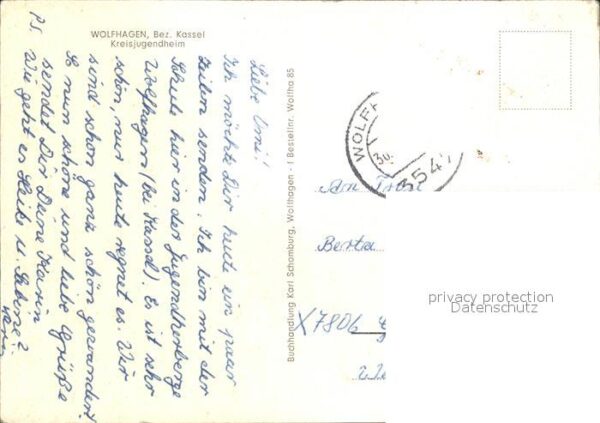 WOLFHAGEN, Bez. Kassel
Kreisjugendheim
Liebe Omi!
Ich möchte Dir heute ein paar
Zeilen senden. Ich bin mit der
Schule hier in der Jugendherberge
Wolfhagen (bei Kassel). Es ist sehr
schön, nur heute regnet es. Wir
sind schon ganz schön gewandert
So nun schöne und liebe Grüße
sendet Dir Deine Karin
PS. Wie geht es Heike u. Sabine?
Buchhandlung Karl Schomburg, Wolfhagen - f Bestellnr. Wolfha 85
WOLFH
30.
3549
An Frau
Berta
X7806
privacy protection
Datenschutz